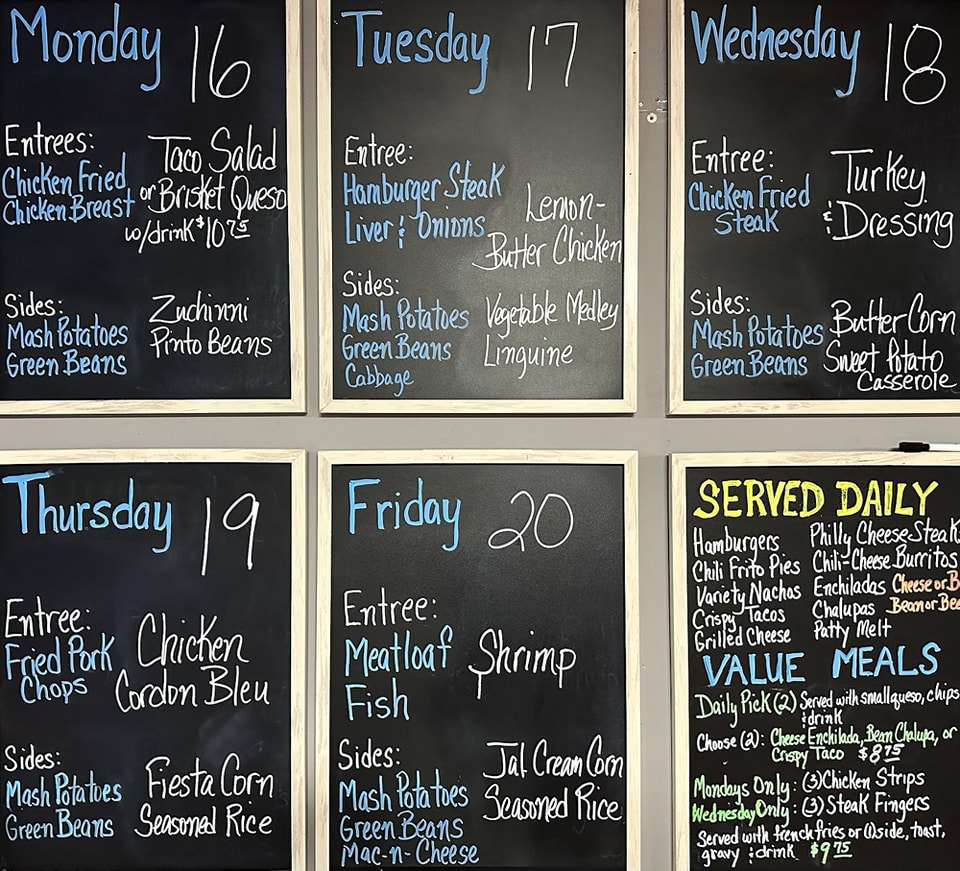 Monday 16
Entrees:
Chicken Fried
Chicken Breast
Taco Salad
or Brisket Queso
w/drink $10.75
Sides:
Mash Potatoes
Green Beans
Zuchinni
Pinto Beans
Tuesday 17
Entree:
Hamburger Steak
Liver & Onions
Lemon-
Butter Chicken
Sides:
Mash Potatoes
Green Beans
Cabbage
Vegetable Medley
Linguine
Wednesday 18
Entree:
Chicken Fried
Steak
Turkey
& Dressing
Sides:
Mash Potatoes
Green Beans
Butter Corn
Sweet Potato
Casserole
Thursday 19
Entree:
Fried Pork
Chops
Chicken
Cordon Bleu
Sides:
Mash Potatoes
Green Beans
Fiesta Corn
Seasoned Rice
Friday 20
Entree:
Meatloaf
Fish
Shrimp
Sides:
Mash Potatoes
Green Beans
Mac-n-Cheese
Jal. Cream Corn
Seasoned Rice
SERVED DAILY
Hamburgers
Chili Frito Pies
Variety Nachos
Crispy Tacos
Grilled Cheese
Philly Cheese Steak
Chili-Cheese Burritos
Enchiladas Cheese or
Chalupas Bean or
Patty Melt
VALUE MEALS
Daily Pick (2) Served with small queso, chips
& drink
Choose (2): Cheese Enchilada, Bean Chalupa, or
Crispy Taco $8.75
Mondays Only: (3) Chicken Strips
Wednesday Only: (3) Steak Fingers
Served with french fries or (1) side, toast,
gravy & drink $9.75